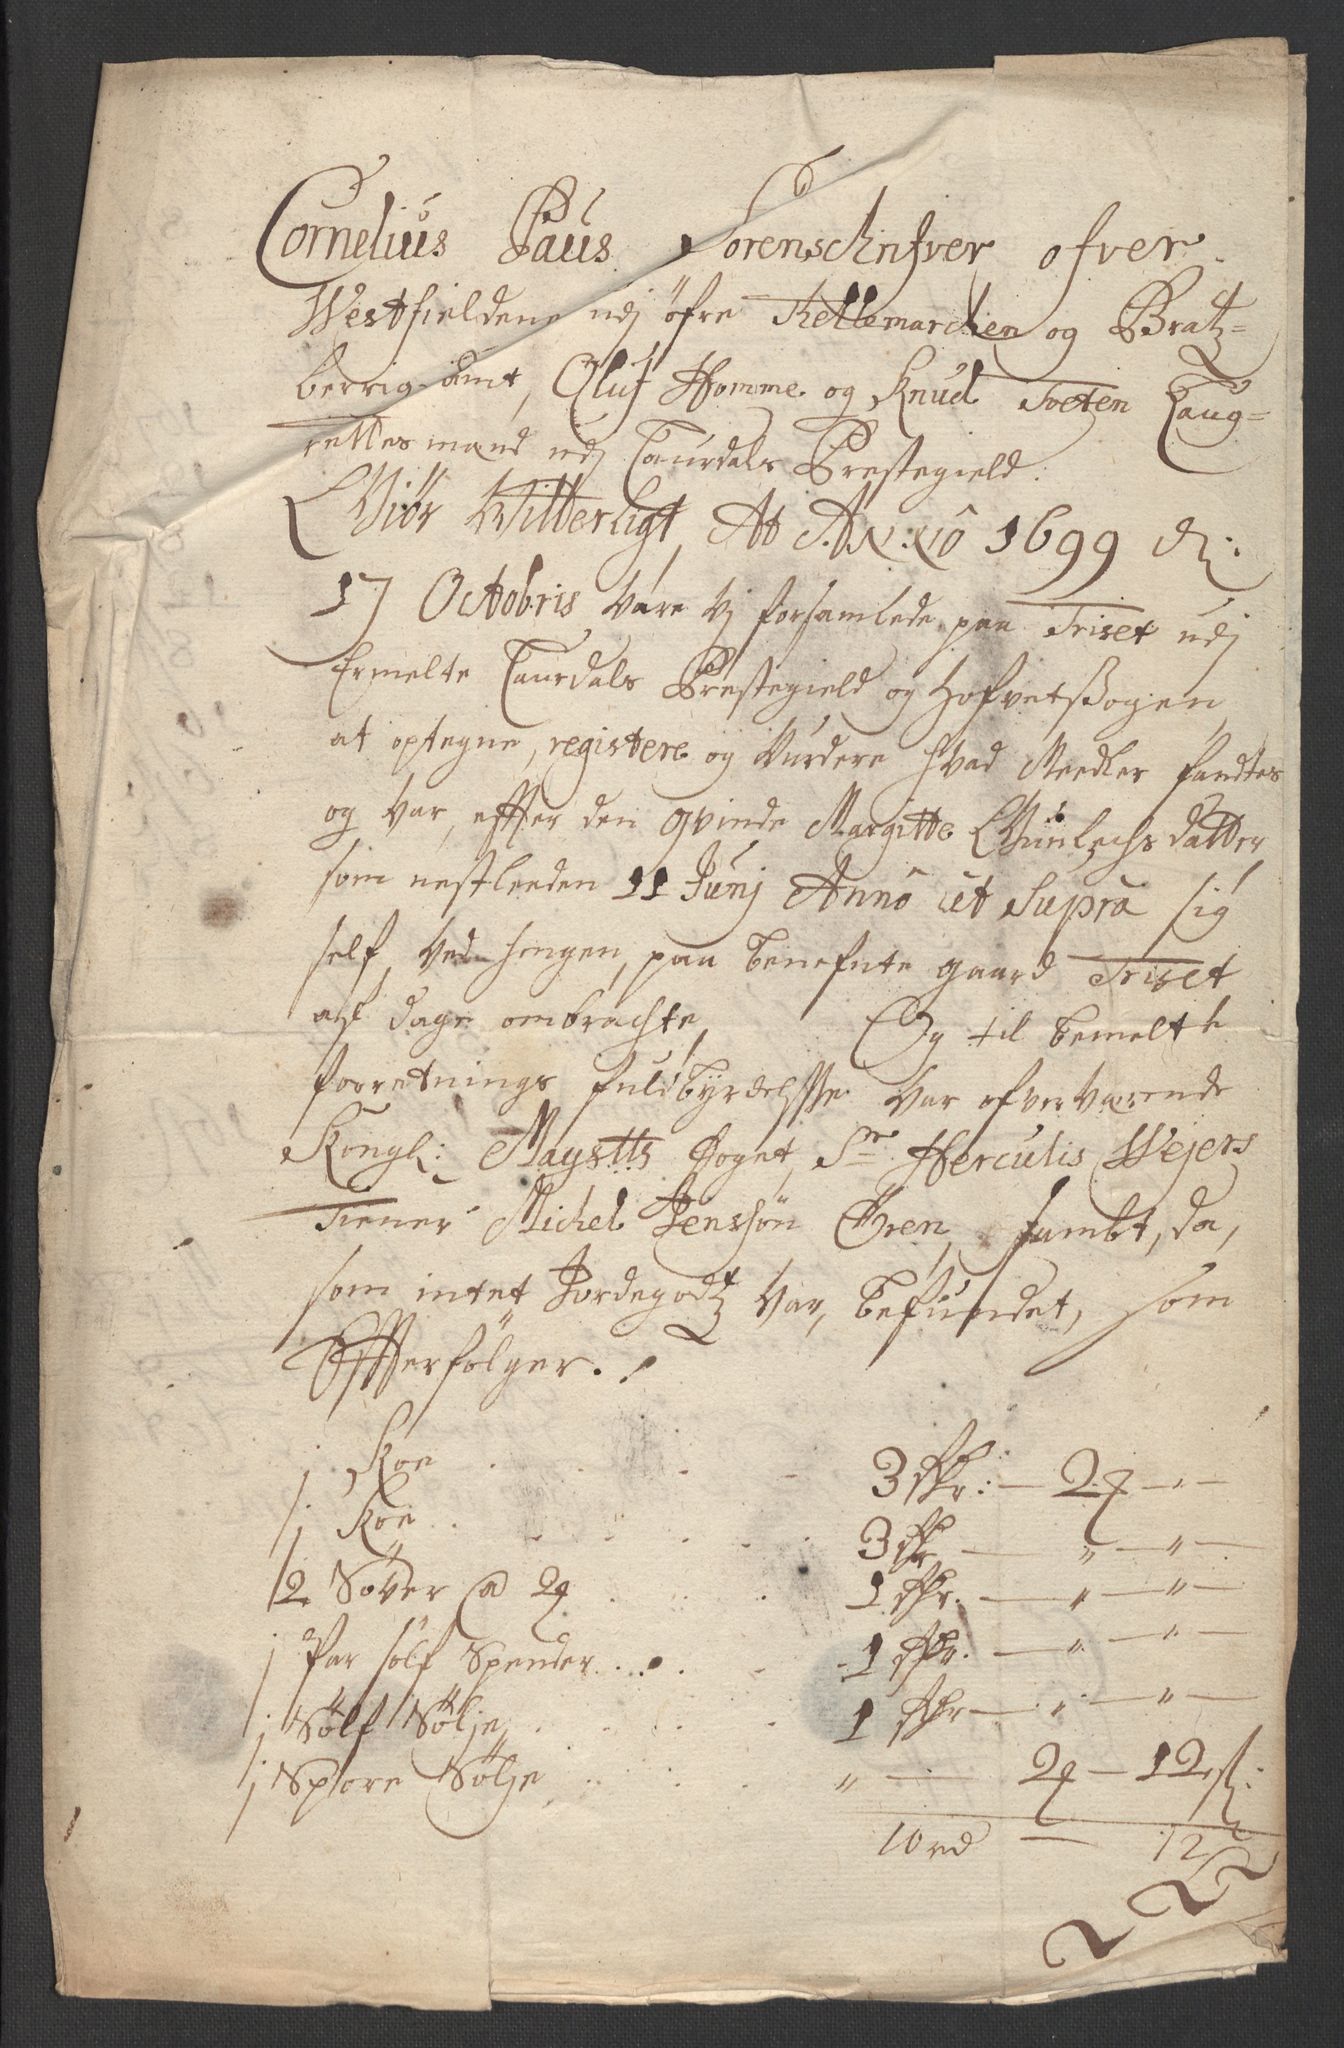 Cornelius Paus Sorenschrifver ofver
Westfieldene udj öfre Tellemarchen og Bratz=
berrig amt, Oluf Homme og Knud Tveten Laug=
rettes mænd udj Laurdals Prestegield:
Giör Vitterligt, At Anno 1699 d:
17 Octobris vare vj forsamlede paa Triset udj
Ermelte Laurdals Prestegield og HofvetSogen,
at optegne, registere og Vurdere hvad Meedler fandtes
og var, effter den qvinde Margitte Gunlechs datter,
som nestleeden 11 Junj Anno ut Supra sig
self, ved hengen, paa benefnte gaard Triset
af dage ombrachte, Og til bemelte
forretnings fuldbyrdelsse var ofverværende
Kongl: Maystts foget, Sr Herculis Wejers
Tiener Michel Jenssön Gren, sambt, da,
som intet Jordegodtz var, befundet, som
Effterfölger.
1 Koe . . . 3 rdr: — 2q — „ —
1 Koe . . . 3 rdr — „ — „ —
2 Söver @ 2q . . . 1 rdr. — „ — „ —
1 Par sölf Spender . . . 1 rdr. — „ — „ —
1 Sölf Sölje . . . 1 rdr — „ — „ —
1 Spore Sölje . . . „ — 2q — 12 sk:
10 rd — 12